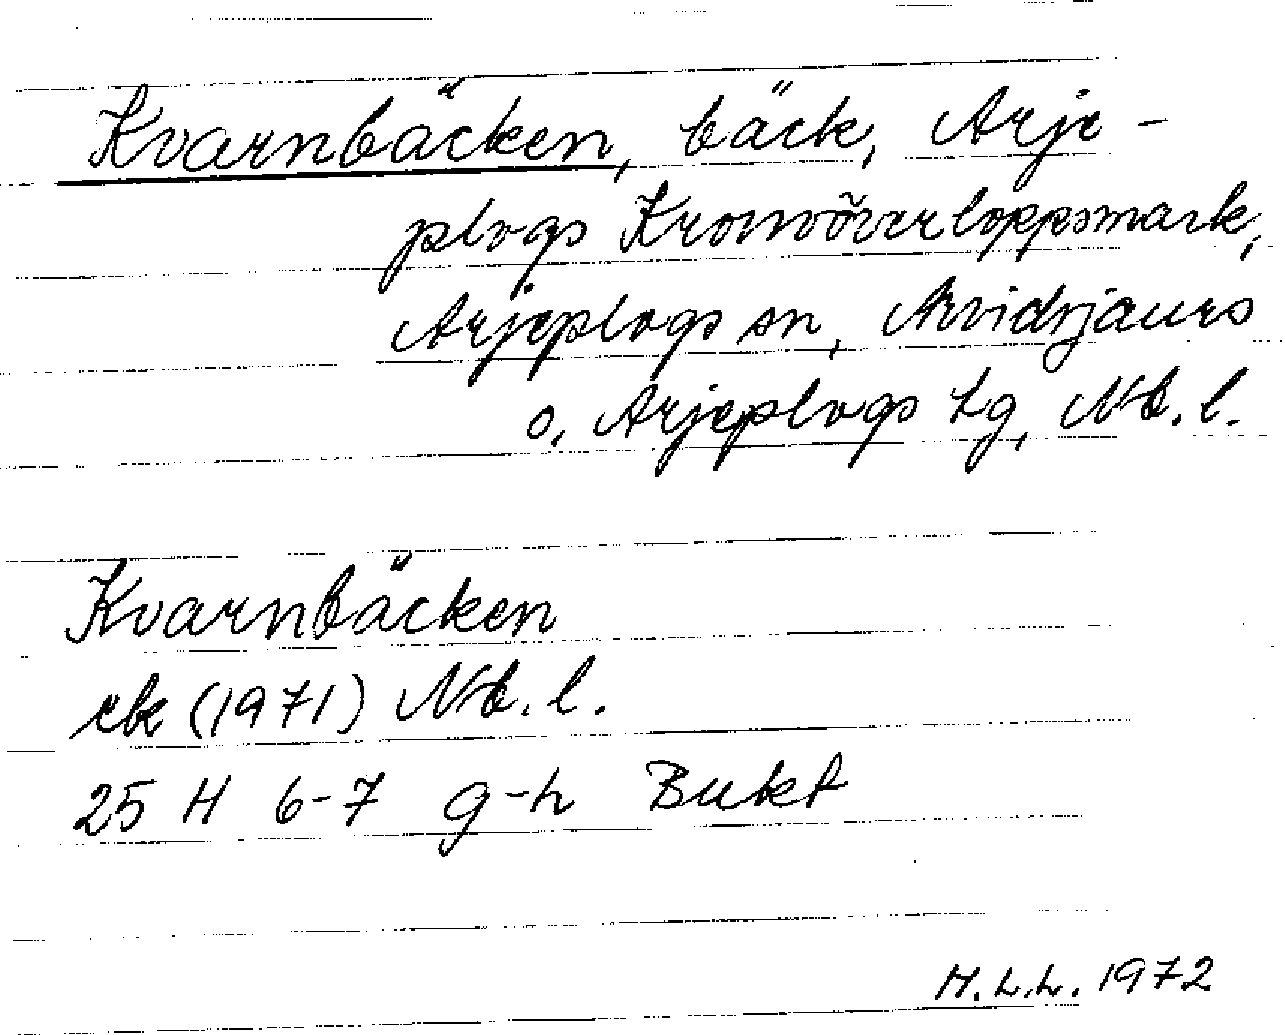 Kvarnbäcken, bäck, Arje-
plogs Kronoöverloppsmark,
Arjeplogs sn, Arvidsjaurs
o. Arjeplogs tg, Nb. l.
Kvarnbäcken
ek (1971) Nb. l.
25 H 6-7 g-h Bukt
H.L.L. 1972